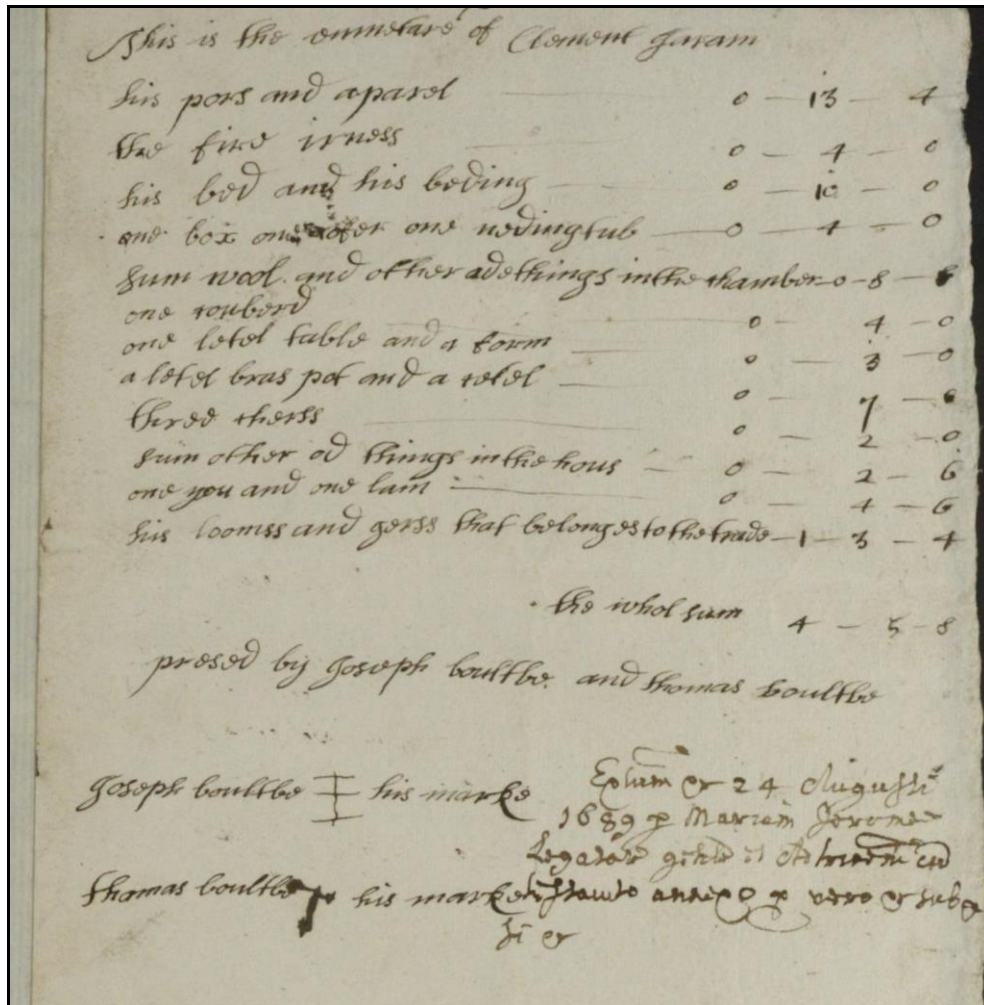 This is the enuetare of Clement Jaram
his pors and aparel 0 – 13 – 4
the fire irness 0 – 4 – 0
his bed and his beding 0 – 10 – 0
one box one cofer one nedingtub 0 – 4 – 0
sum wool and other ade things in the chamber 0 – 8 –
one couberd 0 – 4 – 0
one letel table and a form 0 – 3 – 0
a letel bras pot and a cetel 0 – 7 –
three cherss 0 – 2 – 0
sum other od things in the hous 0 – 2 – 6
one you and one lam 0 – 4 – 6
his loomss and gerss that belonges to the trade – 1 – 3 – 4
the whol sum 4 – 5 – 8
presed by Joseph boultbe and thomas boultbe
Joseph boultbe his marke
24 Augusti
1689 p Mariam Jerome
thomas boultbe his marke annexo p vero &
si &